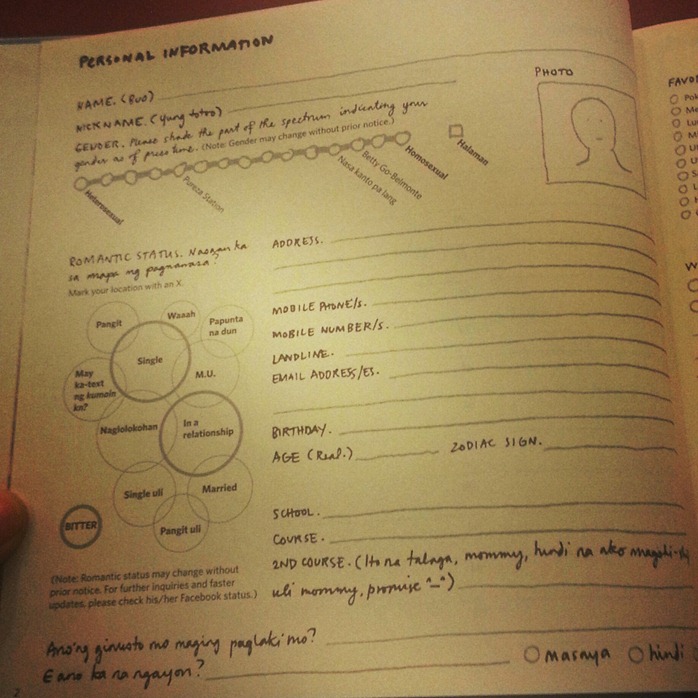 PERSONAL INFORMATION
NAME. (Buo)
NICKNAME. (Yung totoo)
GENDER. Please shade the part of the spectrum indicating your
gender as of press time. (Note: Gender may change without prior notice.)
Heterosexual
Pureza Station
Nasa kanto pa lang
Betty Go-Belmonte
Homosexual
Halaman
PHOTO
ROMANTIC STATUS. Nasaan ka
sa mapa ng pagnanasa?
Mark your location with an X.
Pangit
Waaah
Papunta
na dun
Single
May
ka-text
ng kumain
kn?
M.U.
Naglolokohan
In a
relationship
Single uli
Married
Pangit uli
BITTER
(Note: Romantic status may change without
prior notice. For further inquiries and faster
updates, please check his/her Facebook status.)
ADDRESS.
MOBILE PHONE/S.
MOBILE NUMBER/S.
LANDLINE.
EMAIL ADDRESS/ES.
BIRTHDAY.
AGE (Real.) ZODIAC SIGN.
SCHOOL.
COURSE.
2ND COURSE. (Ito na talaga, mommy, hindi na ako
uli mommy, promise ^_^)
Ano'ng ginusto mo maging paglaki mo?
E ano ka na ngayon? masaya hindi
2
FAVO